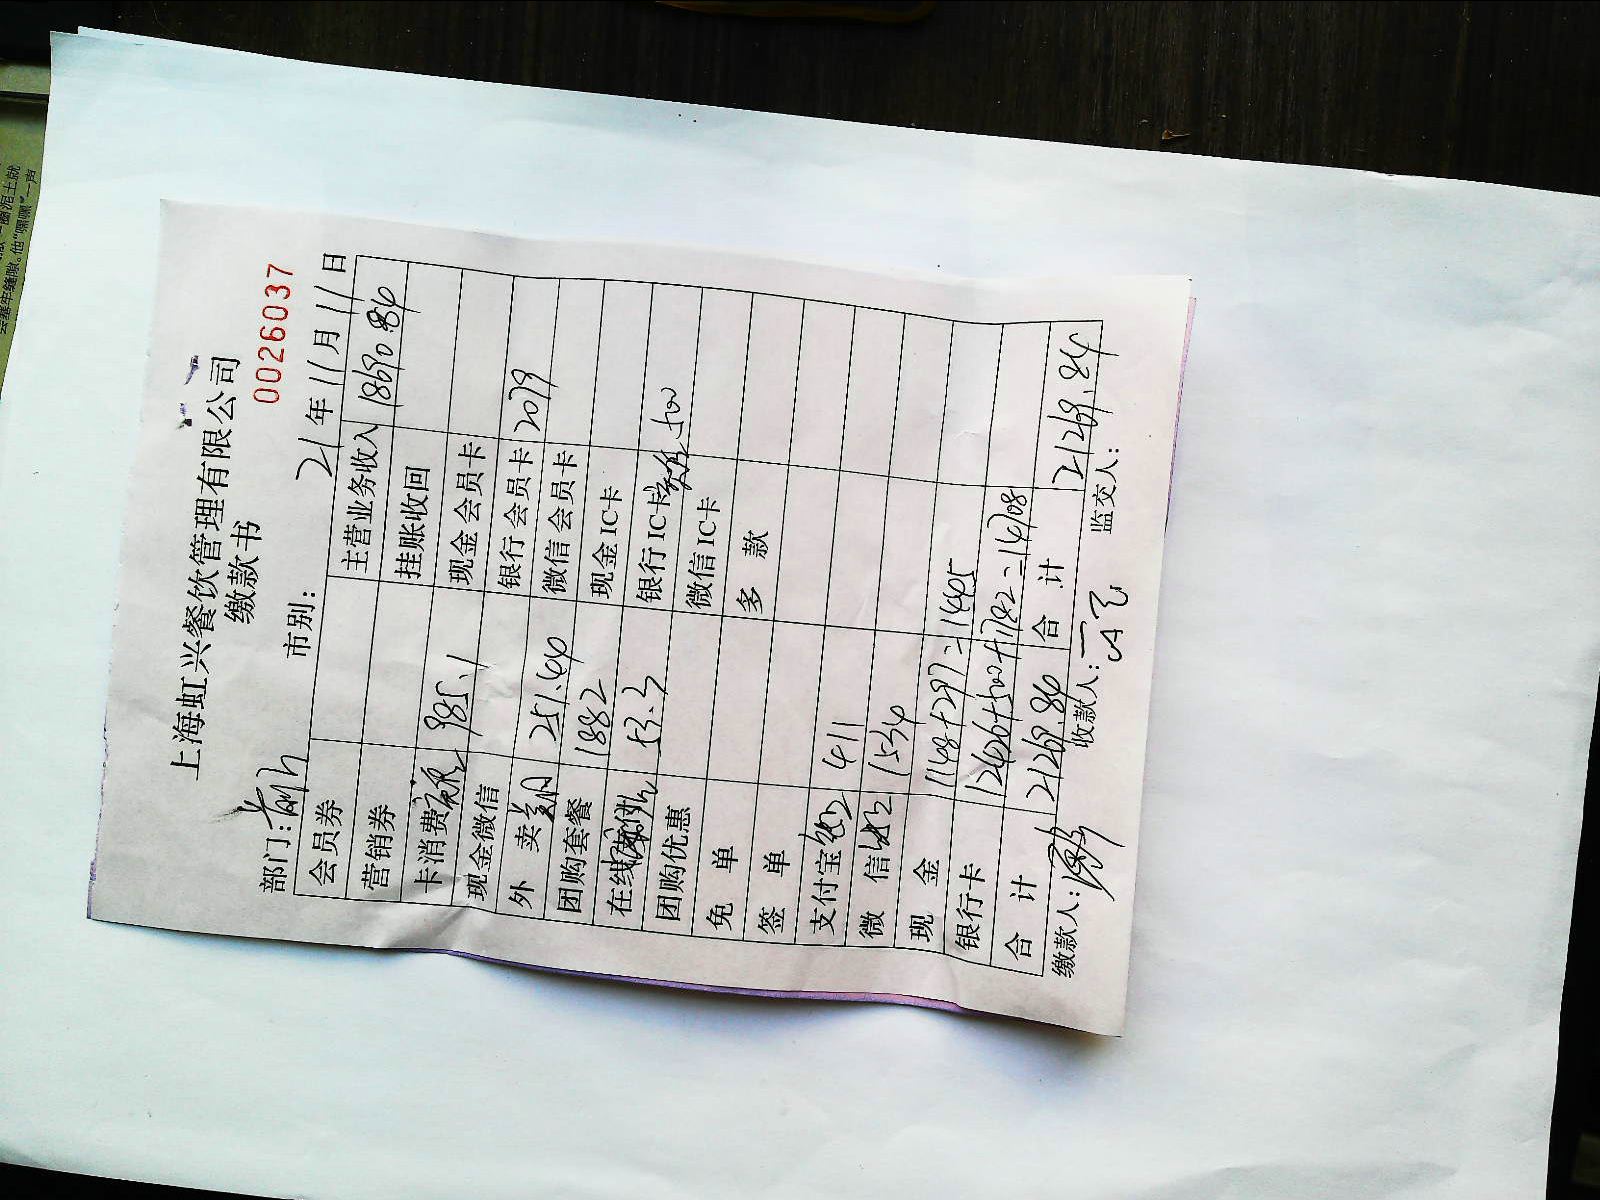 上海虹兴餐饮管理有限公司
缴款书
0026037
部门: 市别: 21年11月11日
会员券 主营业务收入 18690.84
营销券 挂账收回
卡消费 985.1 现金会员卡
现金微信 银行会员卡 2079
外 卖 美团 251.44 微信会员卡
团购套餐 1882 现金IC卡
在线 53.3 银行IC卡 500
团购优惠 微信IC卡
免 单 多 款
签 单
支付宝 411
微 信 1534
现 金 1148+297=1445
银行卡 12426+500+1782=14708
合 计 21269.84 合 计 21269.84
缴款人: 收款人: 监交人:
圈泥土就
缝隙。他“嘿嘿”一声